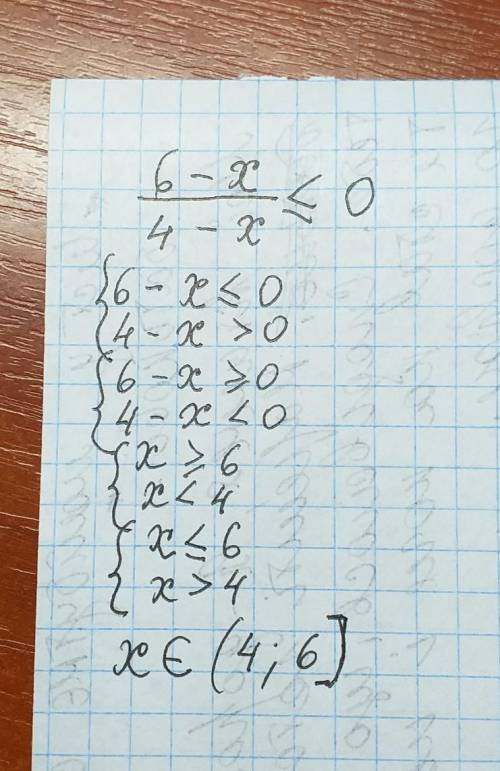 6 - x
4 - x ≤ 0
6 - x ≤ 0
4 - x > 0
6 - x ⩾ 0
4 - x < 0
x ⩾ 6
x < 4
x ≤ 6
x > 4
x ∈ (4; 6]